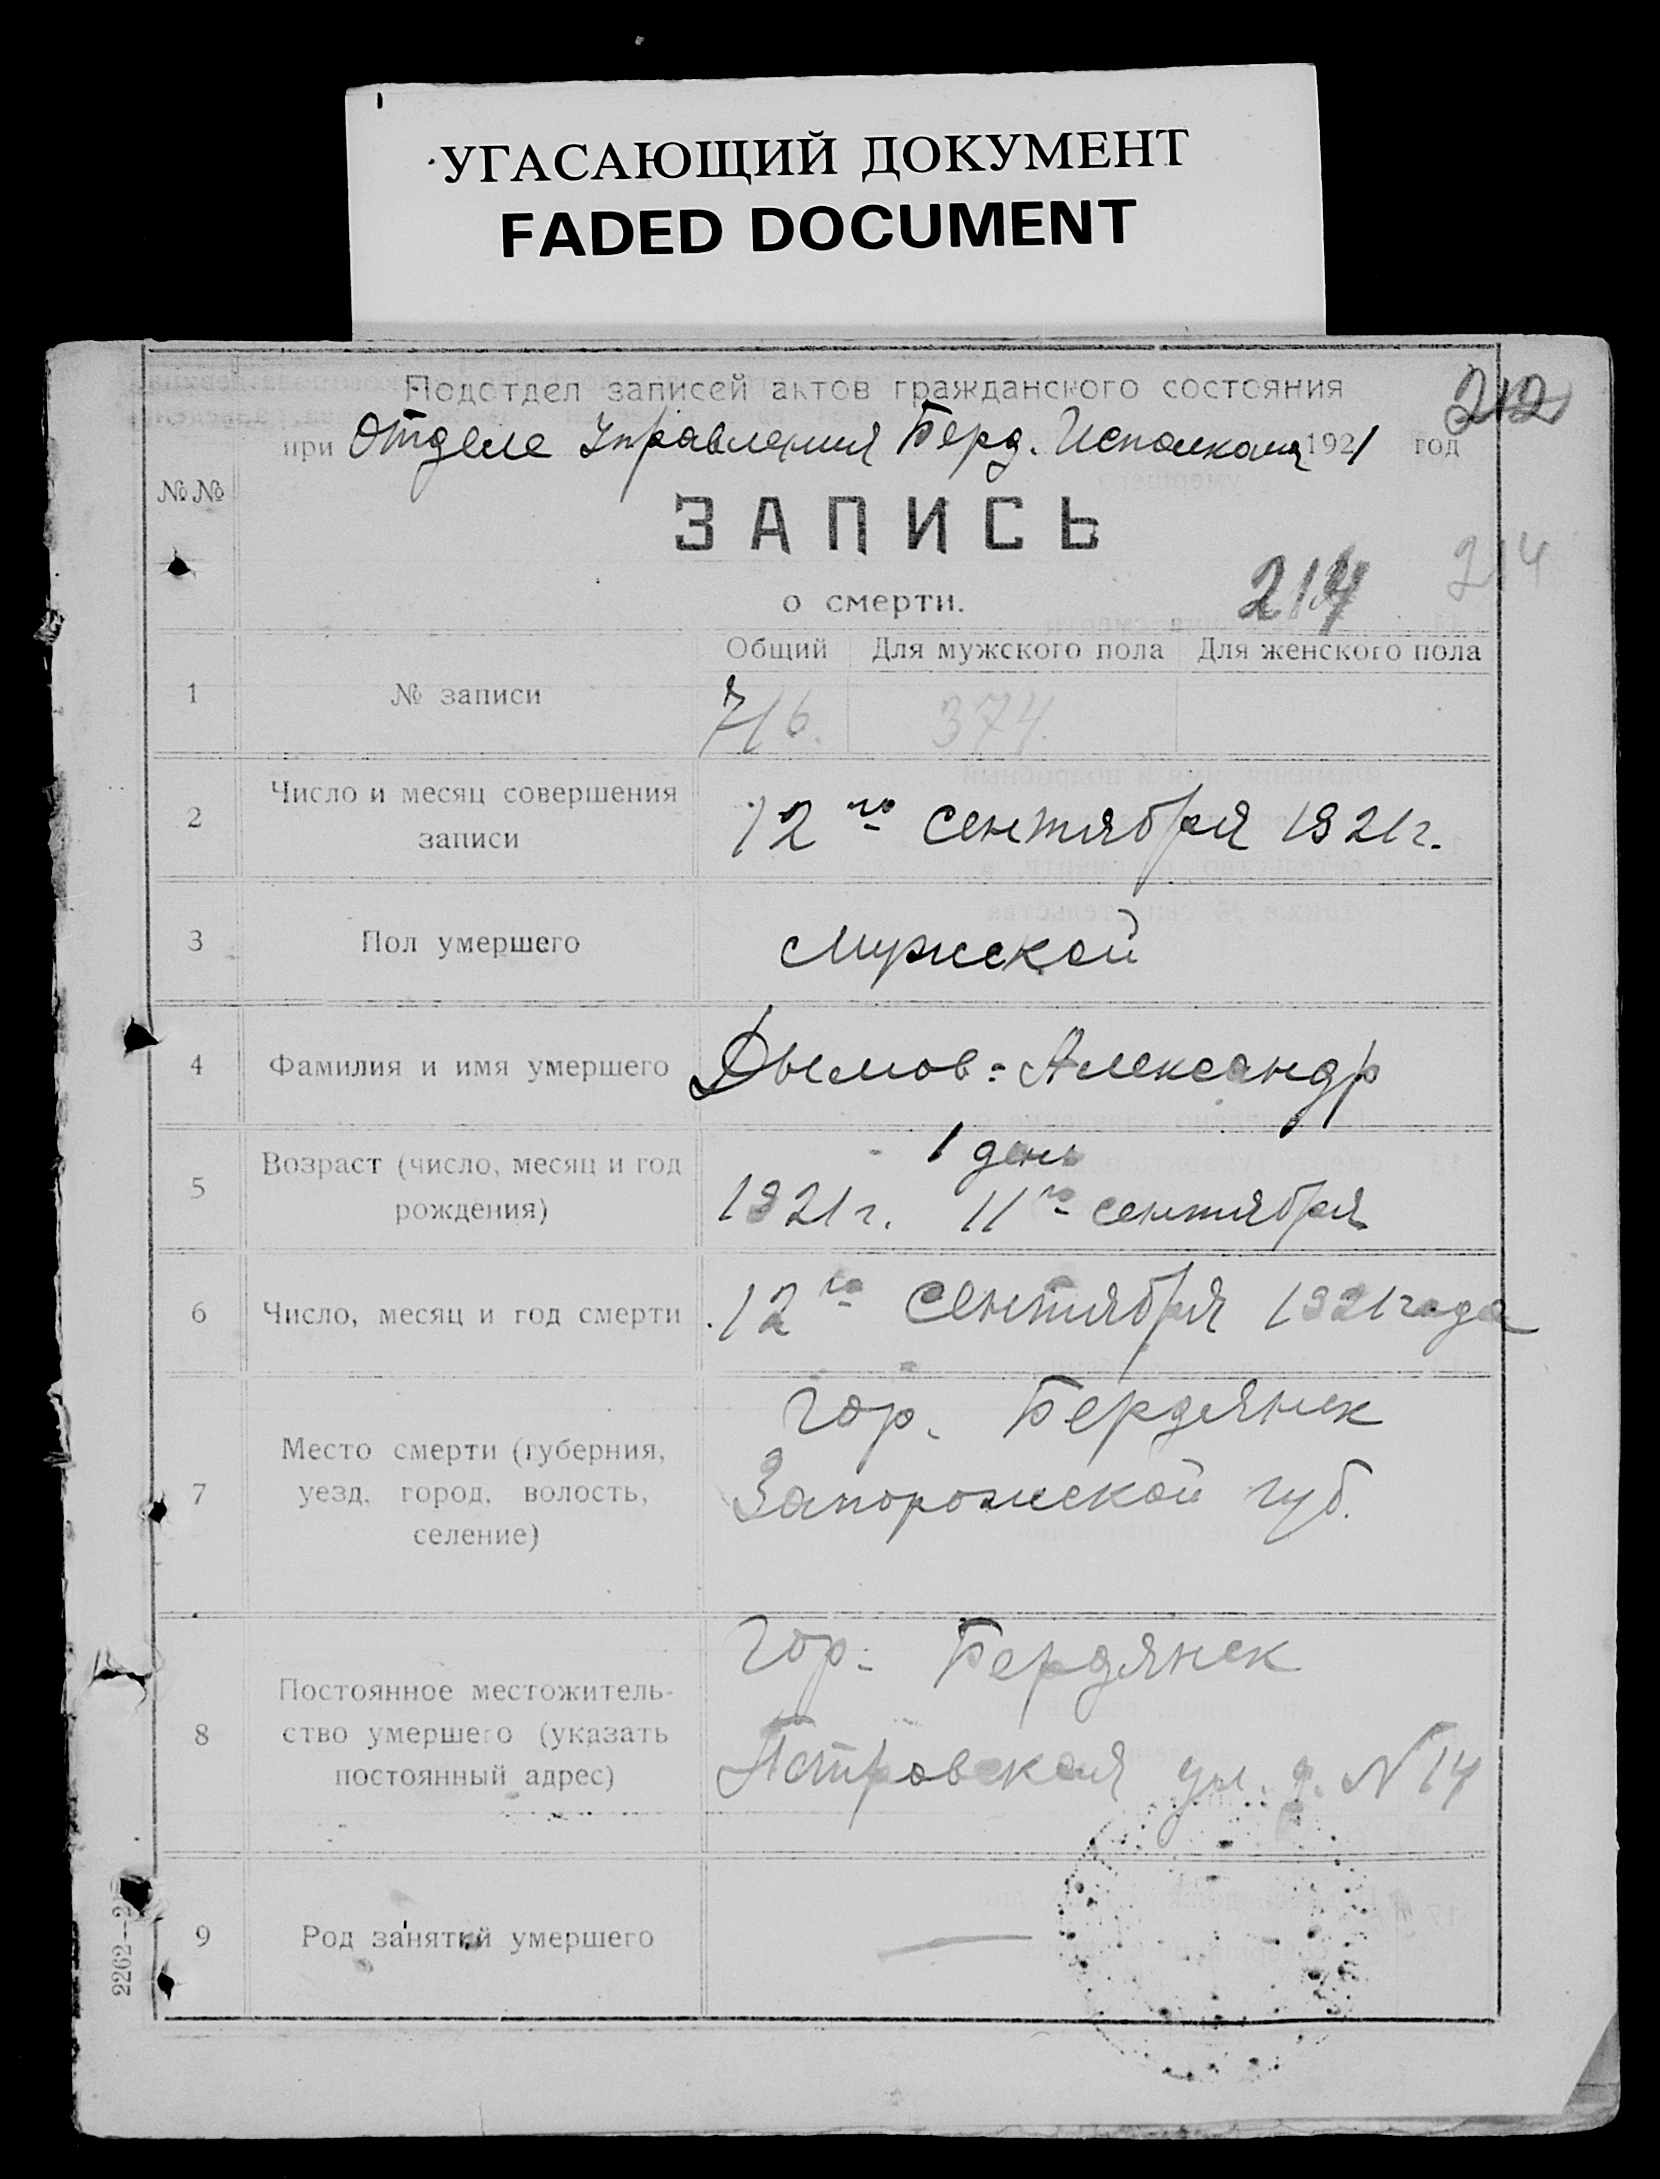 УГАСАЮЩИЙ ДОКУМЕНТ
FADED DOCUMENT
Подотдел записей актов гражданского состояния
212
при Отделе Управления Берд. Исполкома 1921 год
№№
ЗАПИСЬ
о смерти.
214
214
Общий Для мужского пола Для женского пола
1 № записи 716. 374.
2 Число и месяц совершения записи 12го сентября 1921 г.
3 Пол умершего мужской
4 Фамилия и имя умершего Дымов = Александр
5 Возраст (число, месяц и год рождения) 1 день
1921 г. 11го сентября
6 Число, месяц и год смерти 12го сентября 1921 года
7 Место смерти (губерния, уезд, город, волость, селение) гор. Бердянск
Запорожской губ.
8 Постоянное местожитель-
ство умершего (указать
постоянный адрес) Гор. Бердянск
Петровская ул. д. N 14
9 Род занятий умершего —